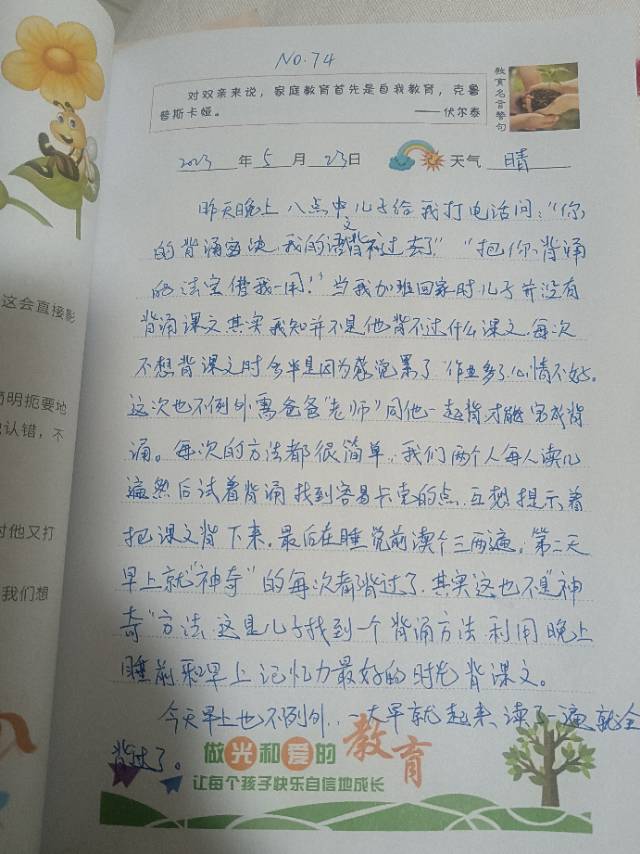 No.74
对双亲来说，家庭教育首先是自我教育，克鲁
普斯卡娅。 ——伏尔泰
教育名言警句
2023 年 5 月 23日 天气 晴
昨天晚上八点中儿子给我打电话问："你
的背诵秘诀,我的语文背不过去了""把你背诵
的法宝借我一用!"当我加班回家时儿子并没有
背诵课文其实我知并不是他背不过什么课文,每次
不想背课文时多半是因为感觉累了作业多了心情不好。
这次也不例外需爸爸"老师"同他一起背才能完成背
诵。每次的方法都很简单,我们两个人每人读几
遍然后试着背诵找到容易卡壳的点,互想提示着
把课文背下来,最后在睡觉前读个三两遍。第二天
早上就"神奇"的每次都背过了,其实这也不是"神
奇"方法,这是儿子找到一个背诵方法,利用晚上
睡前和早上记忆力最好的时光背课文。
今天早上也不例外,一大早就起来,读了一遍就全
背过了。
做光和爱的教育
让每个孩子快乐自信地成长
这会直接影
简明扼要地
认错，不
对他又打
我们想